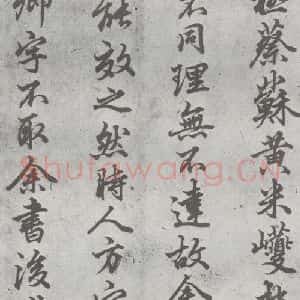 蔡蘇黃米巎
不同理無不達故余
能效之然時人方
卿字不取余書後
Shufawang.CN